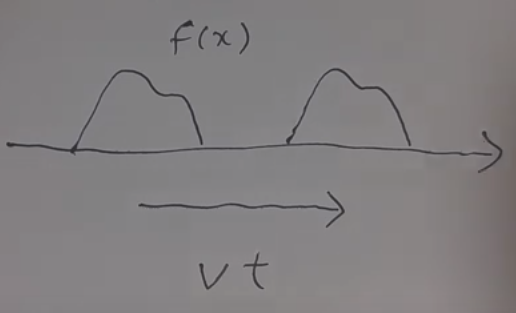 f(x)
vt